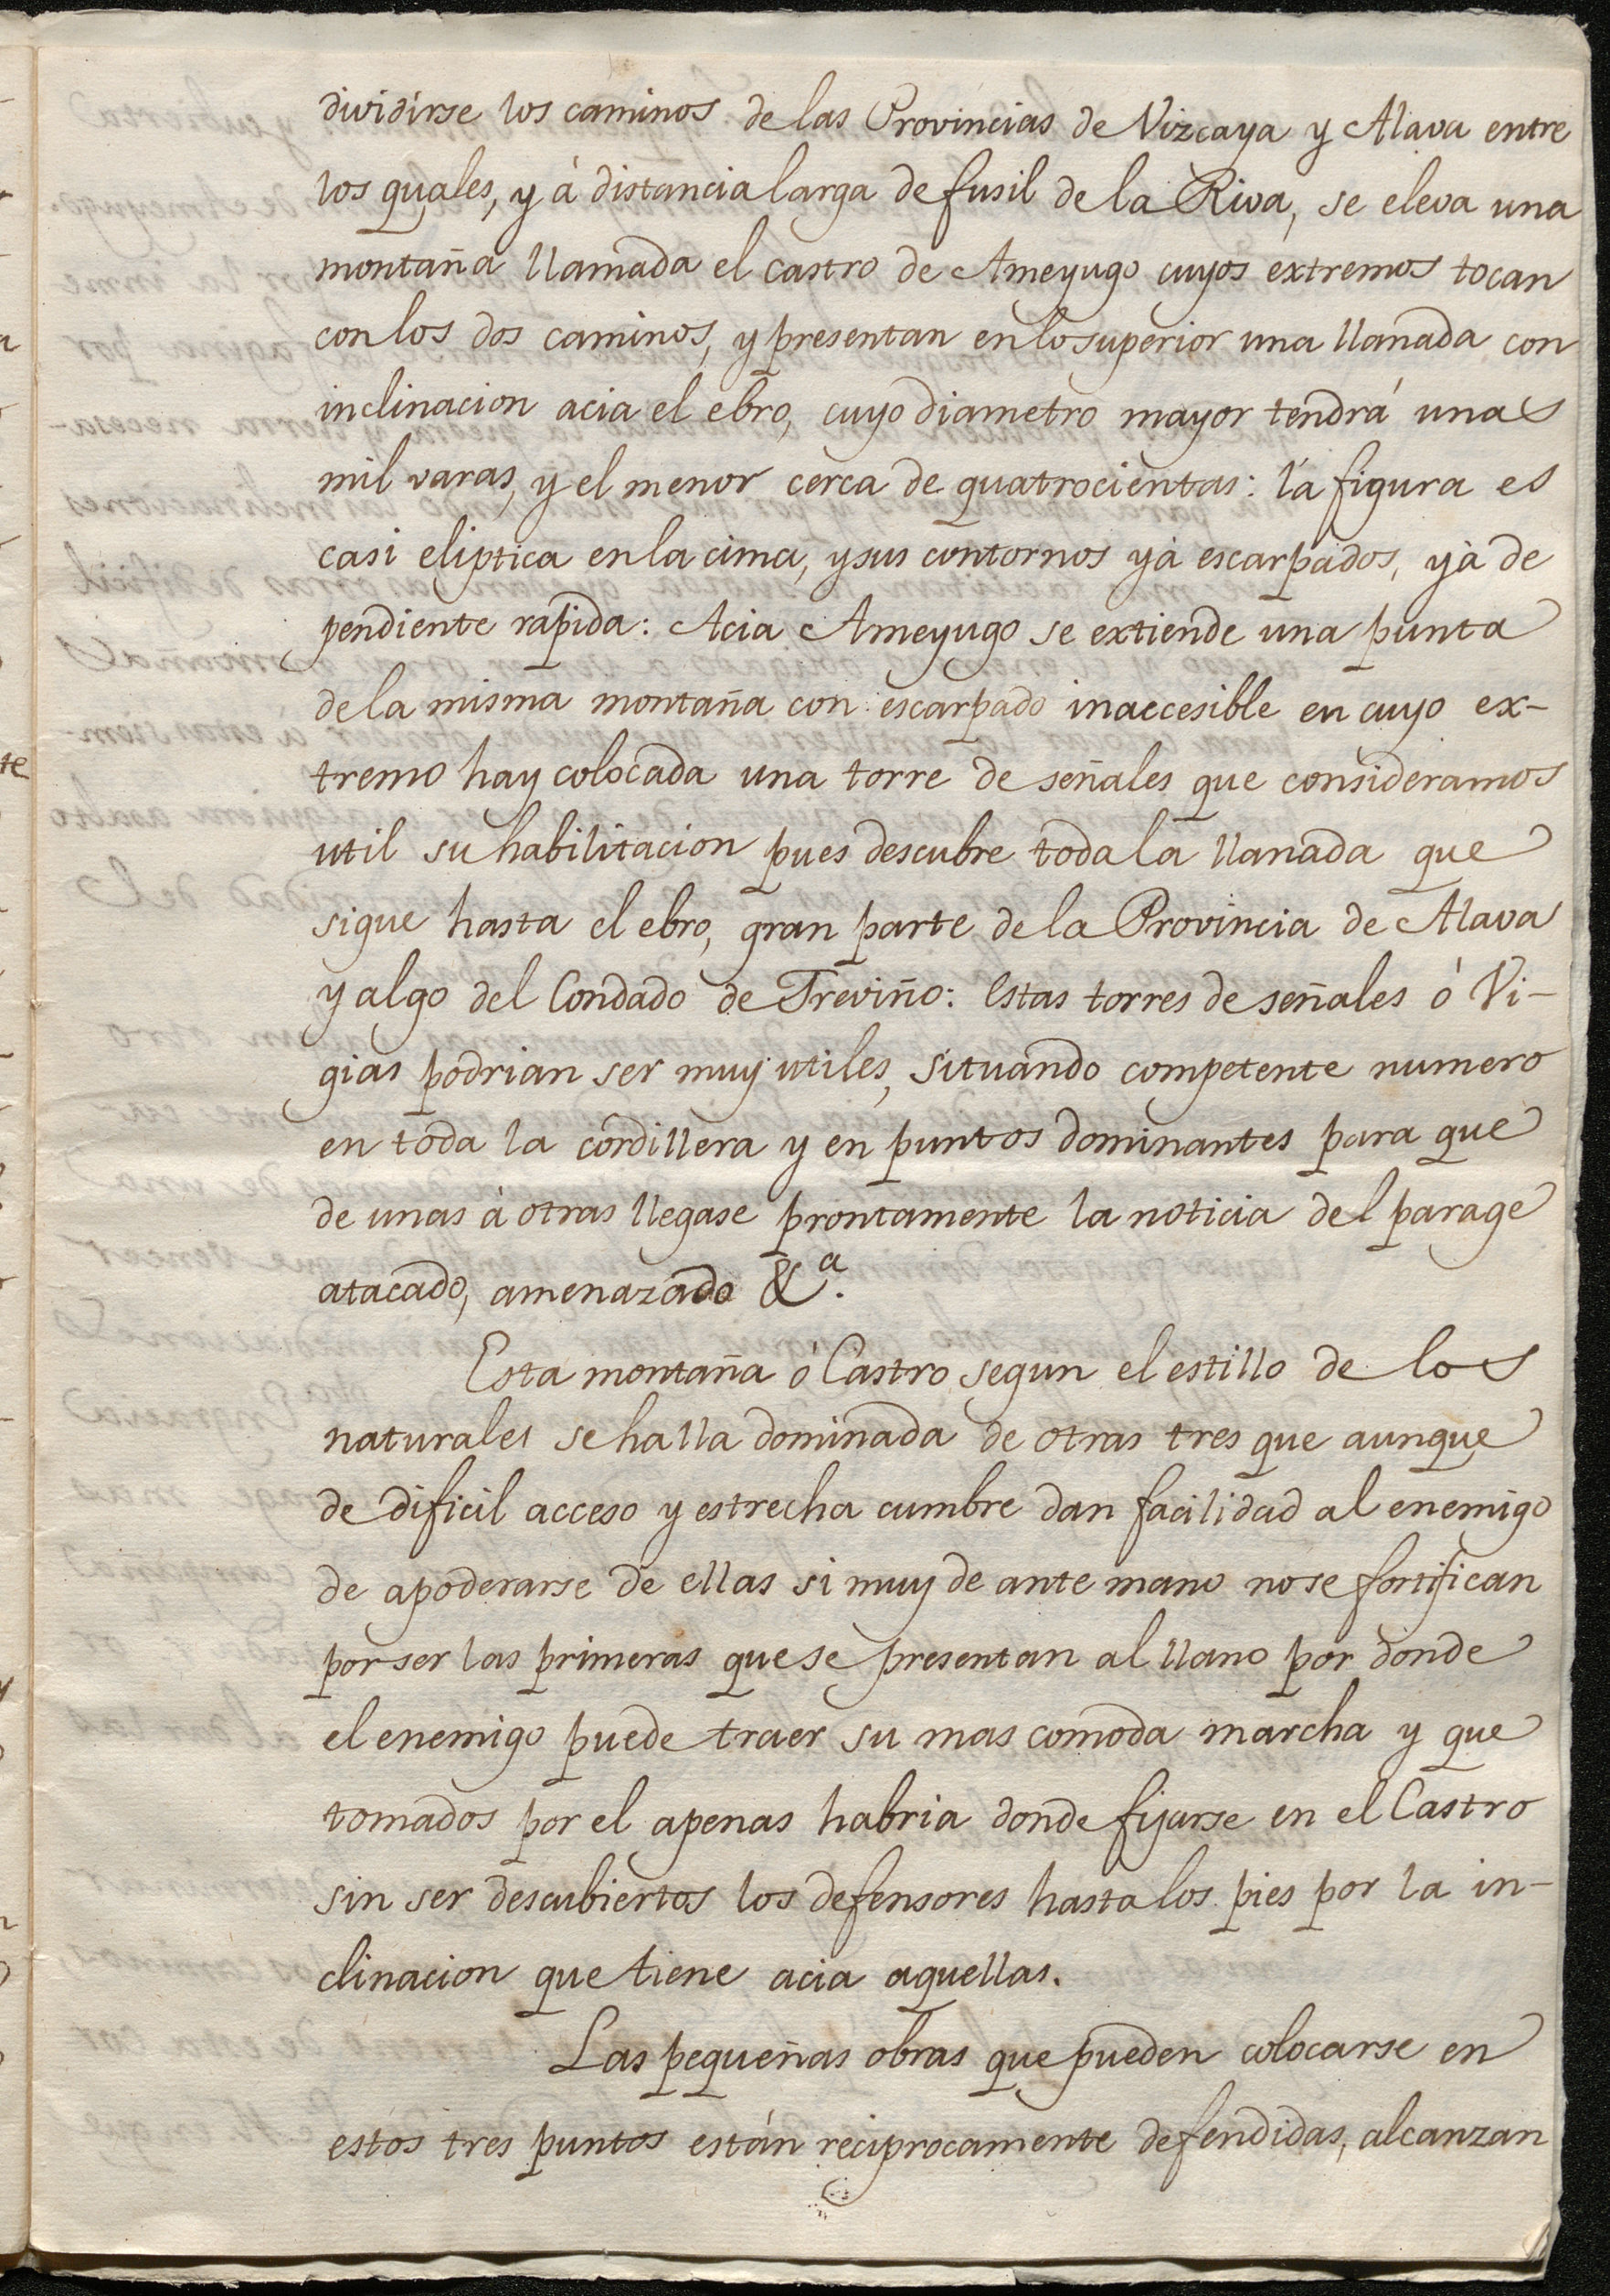 dividirse los caminos de las Provincias de Vizcaya y Alava entre
los quales, y à distancia larga de fusil de la Riva, se eleva una
montaña llamada el castro de Ameyugo cuyos extremos tocan
con los dos caminos, y presentan en lo superior una llanada con
inclinacion acia el ebro, cuyo diametro mayor tendrá unas
mil varas, y el menor cerca de quatrocientas: la figura es
casi eliptica en la cima, y sus contornos yà escarpados, yà de
pendiente rapida: Acia Ameyugo se extiende una punta
de la misma montaña con escarpado inaccesible en cuyo ex-
tremo hay colocada una torre de señales que consideramos
util su habilitacion pues descubre toda la llanada que
sigue hasta el ebro, gran parte de la Provincia de Alava
y algo del Condado de Treviño: Estas torres de señales ó Vi-
gias podrian ser muy utiles, situando competente numero
en toda la cordillera y en puntos dominantes para que
de unas à otras llegase prontamente la noticia del parage
atacado, amenazado &ª.
Esta montaña ó Castro segun el estillo de los
naturales se halla dominada de otras tres que aunque
de dificil acceso y estrecha cumbre dan facilidad al enemigo
de apoderarse de ellas si muy de ante mano no se fortifican
por ser las primeras que se presentan al llano por donde
el enemigo puede traer su mas comoda marcha y que
tomados por el apenas habria donde fijarse en el Castro
sin ser descubiertos los defensores hasta los pies por la in-
clinacion que tiene acia aquellas.
Las pequeñas obras que pueden colocarse en
estos tres puntos están reciprocamente defendidas, alcanzan